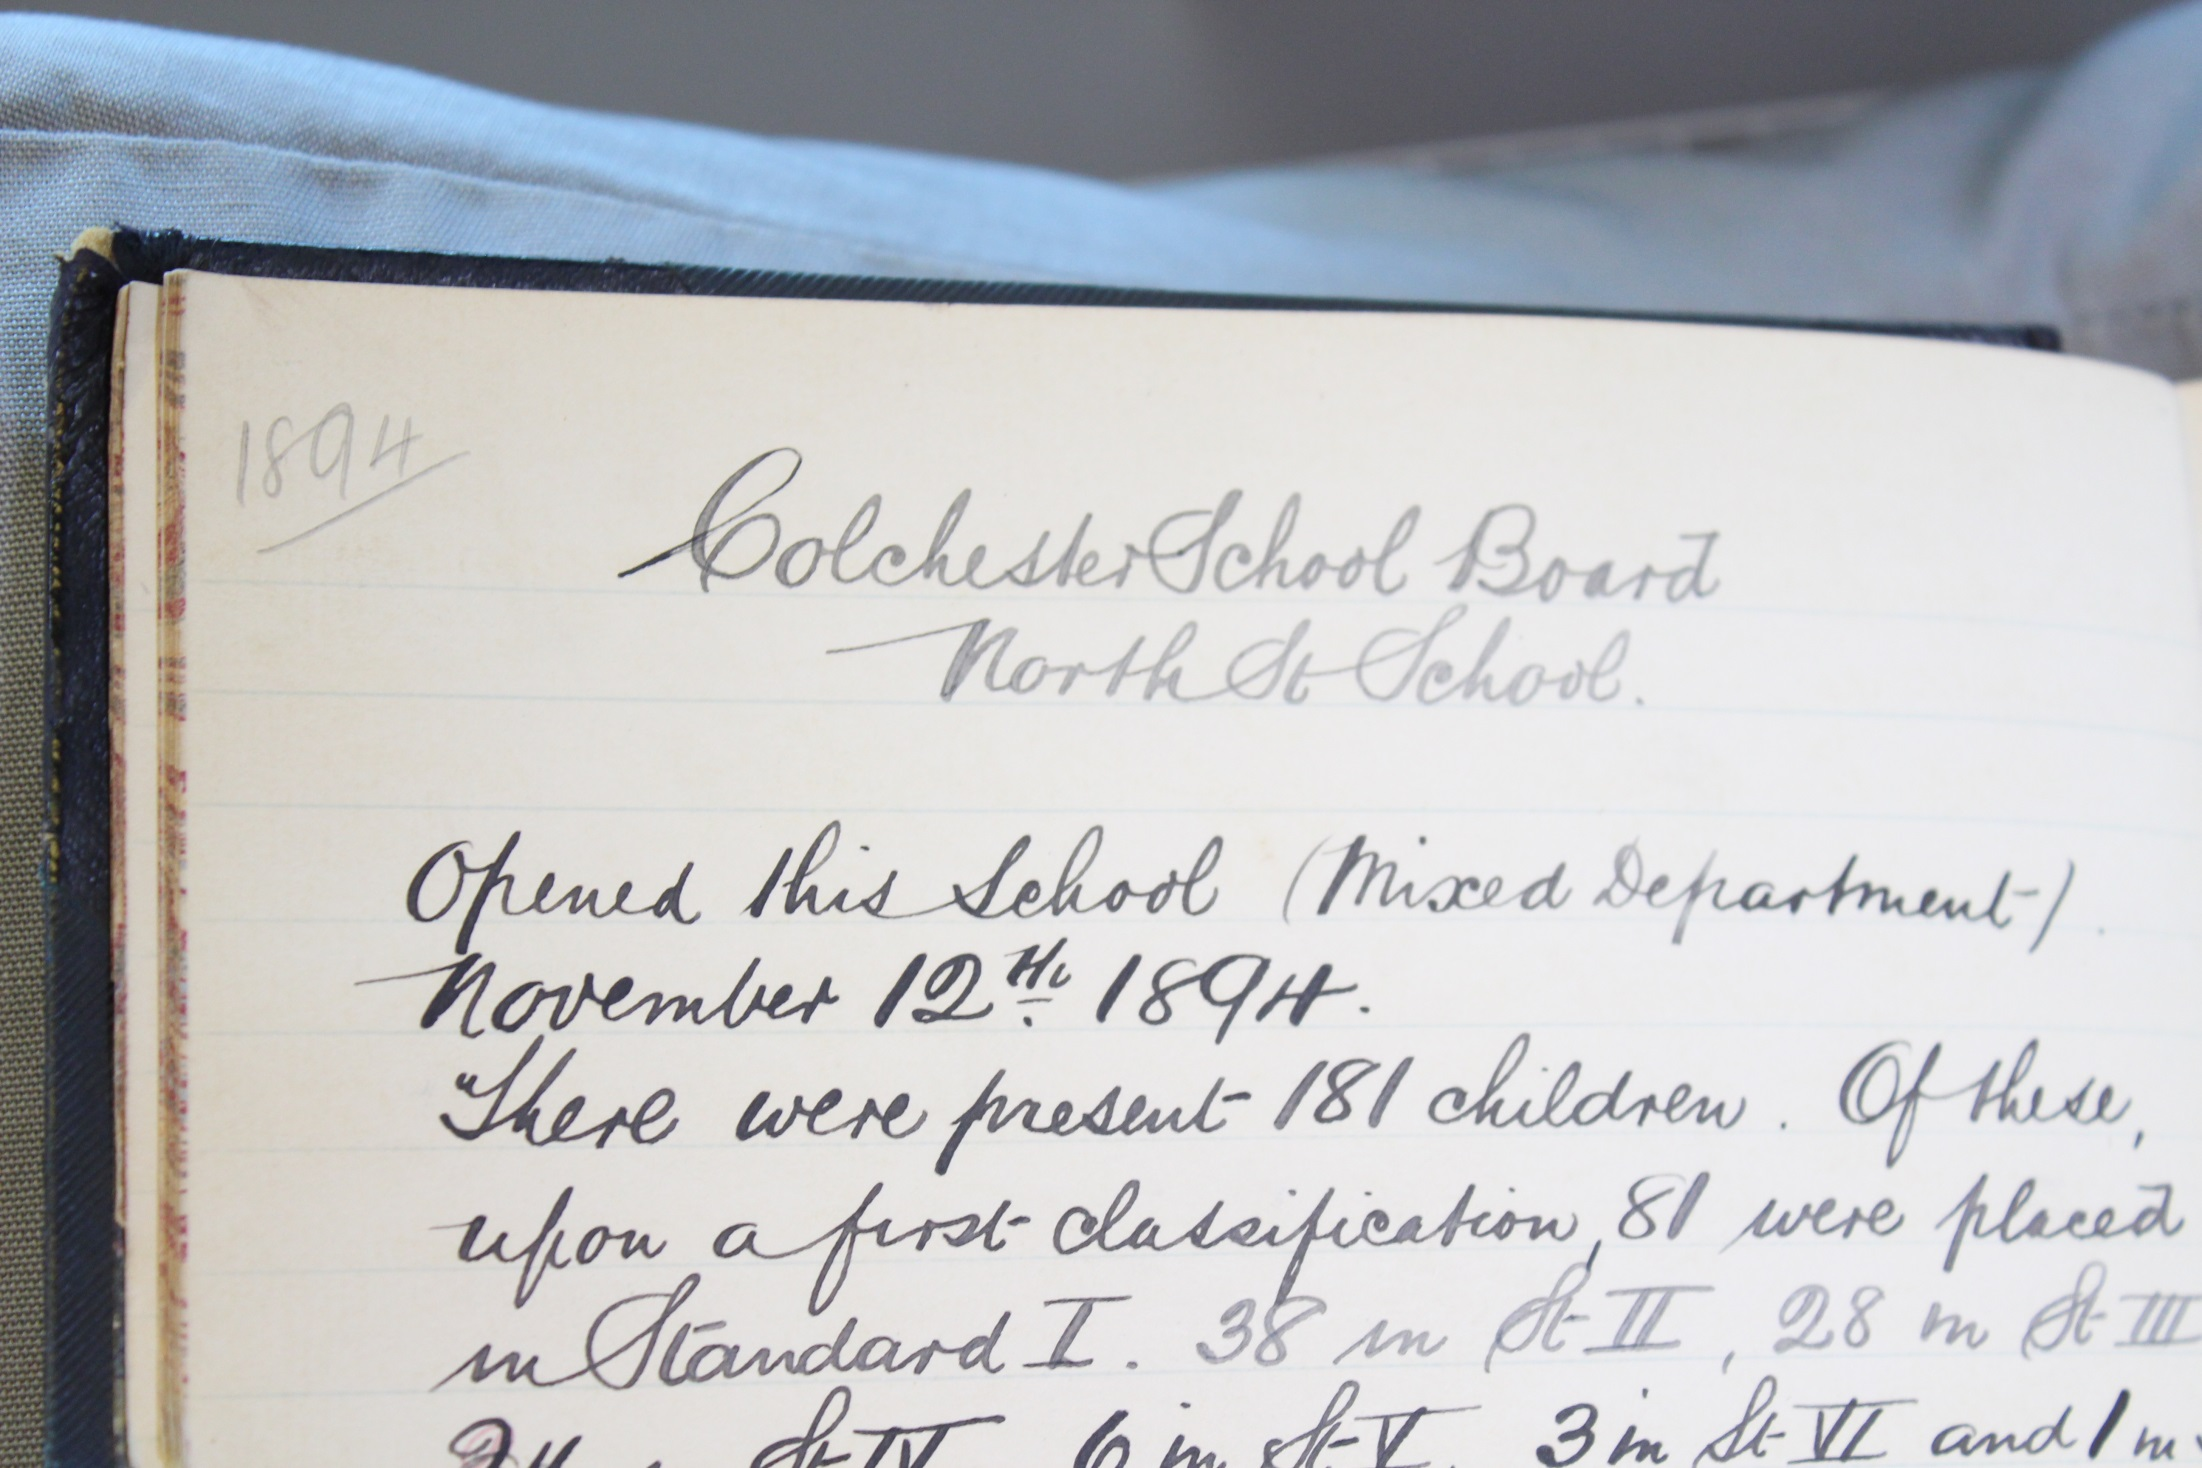 1894
Colchester School Board
North St School.
Opened this School (Mixed Department).
November 12th 1894.
There were present 181 children. Of these,
upon a first classification, 81 were placed
in Standard I. 38 in St II, 28 in St III
24 in St IV, 6 in St V, 3 in St VI and 1 in